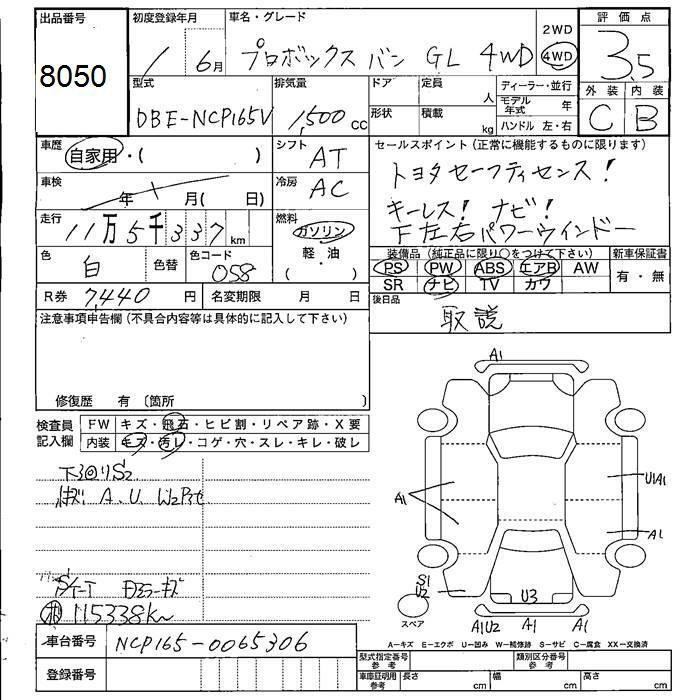 出品番号
8050
初度登録年月
/ 6月
車名・グレード
プロボックス バン GL 4WD
2WD
4WD
評価点
3.5
外装 内装
C B
型式
DBE-NCP165V
排気量
1,500 cc
ドア 定員
人
形状 積載
kg
ディーラー・並行
モデル年式 年
ハンドル 左・右
車歴
自家用・( )
シフト
AT
車検
年 月( 日)
冷房
AC
走行
11万5千337km
燃料
ガソリン
軽・油
( )
色
白
色替
色コード
058
R券 7,440 円
名変期限 月 日
セールスポイント(正常に機能するものに限ります)
トヨタセーフティセンス!
キーレス! ナビ!
下左右パワーウインドー
装備品(純正品に限り○をつけて下さい)
PS PW ABS エアB AW
SR ナビ TV カワ
新車保証書
有・無
後日品
取説
注意事項申告欄(不具合内容等は具体的に記入して下さい)
修復歴 有〔箇所 〕
検査員
記入欄
FW キズ・飛石・ヒビ割・リペア跡・X要
内装 キズ・汚レ・コゲ・穴・スレ・キレ・破レ
下回りS2
A.U.
115338km
車台番号 NCP165-0065306
登録番号
A1
A1
U1A1
A1
S1
U2
スペア
U3
A1U2 A1 A1
A-キズ E-エクボ U-凹み W-補修跡 S-サビ C-腐食 XX-交換済
型式指定番号
参考
類別区分番号
参考
車庫証明用
参考
長さ cm 幅 cm 高さ cm